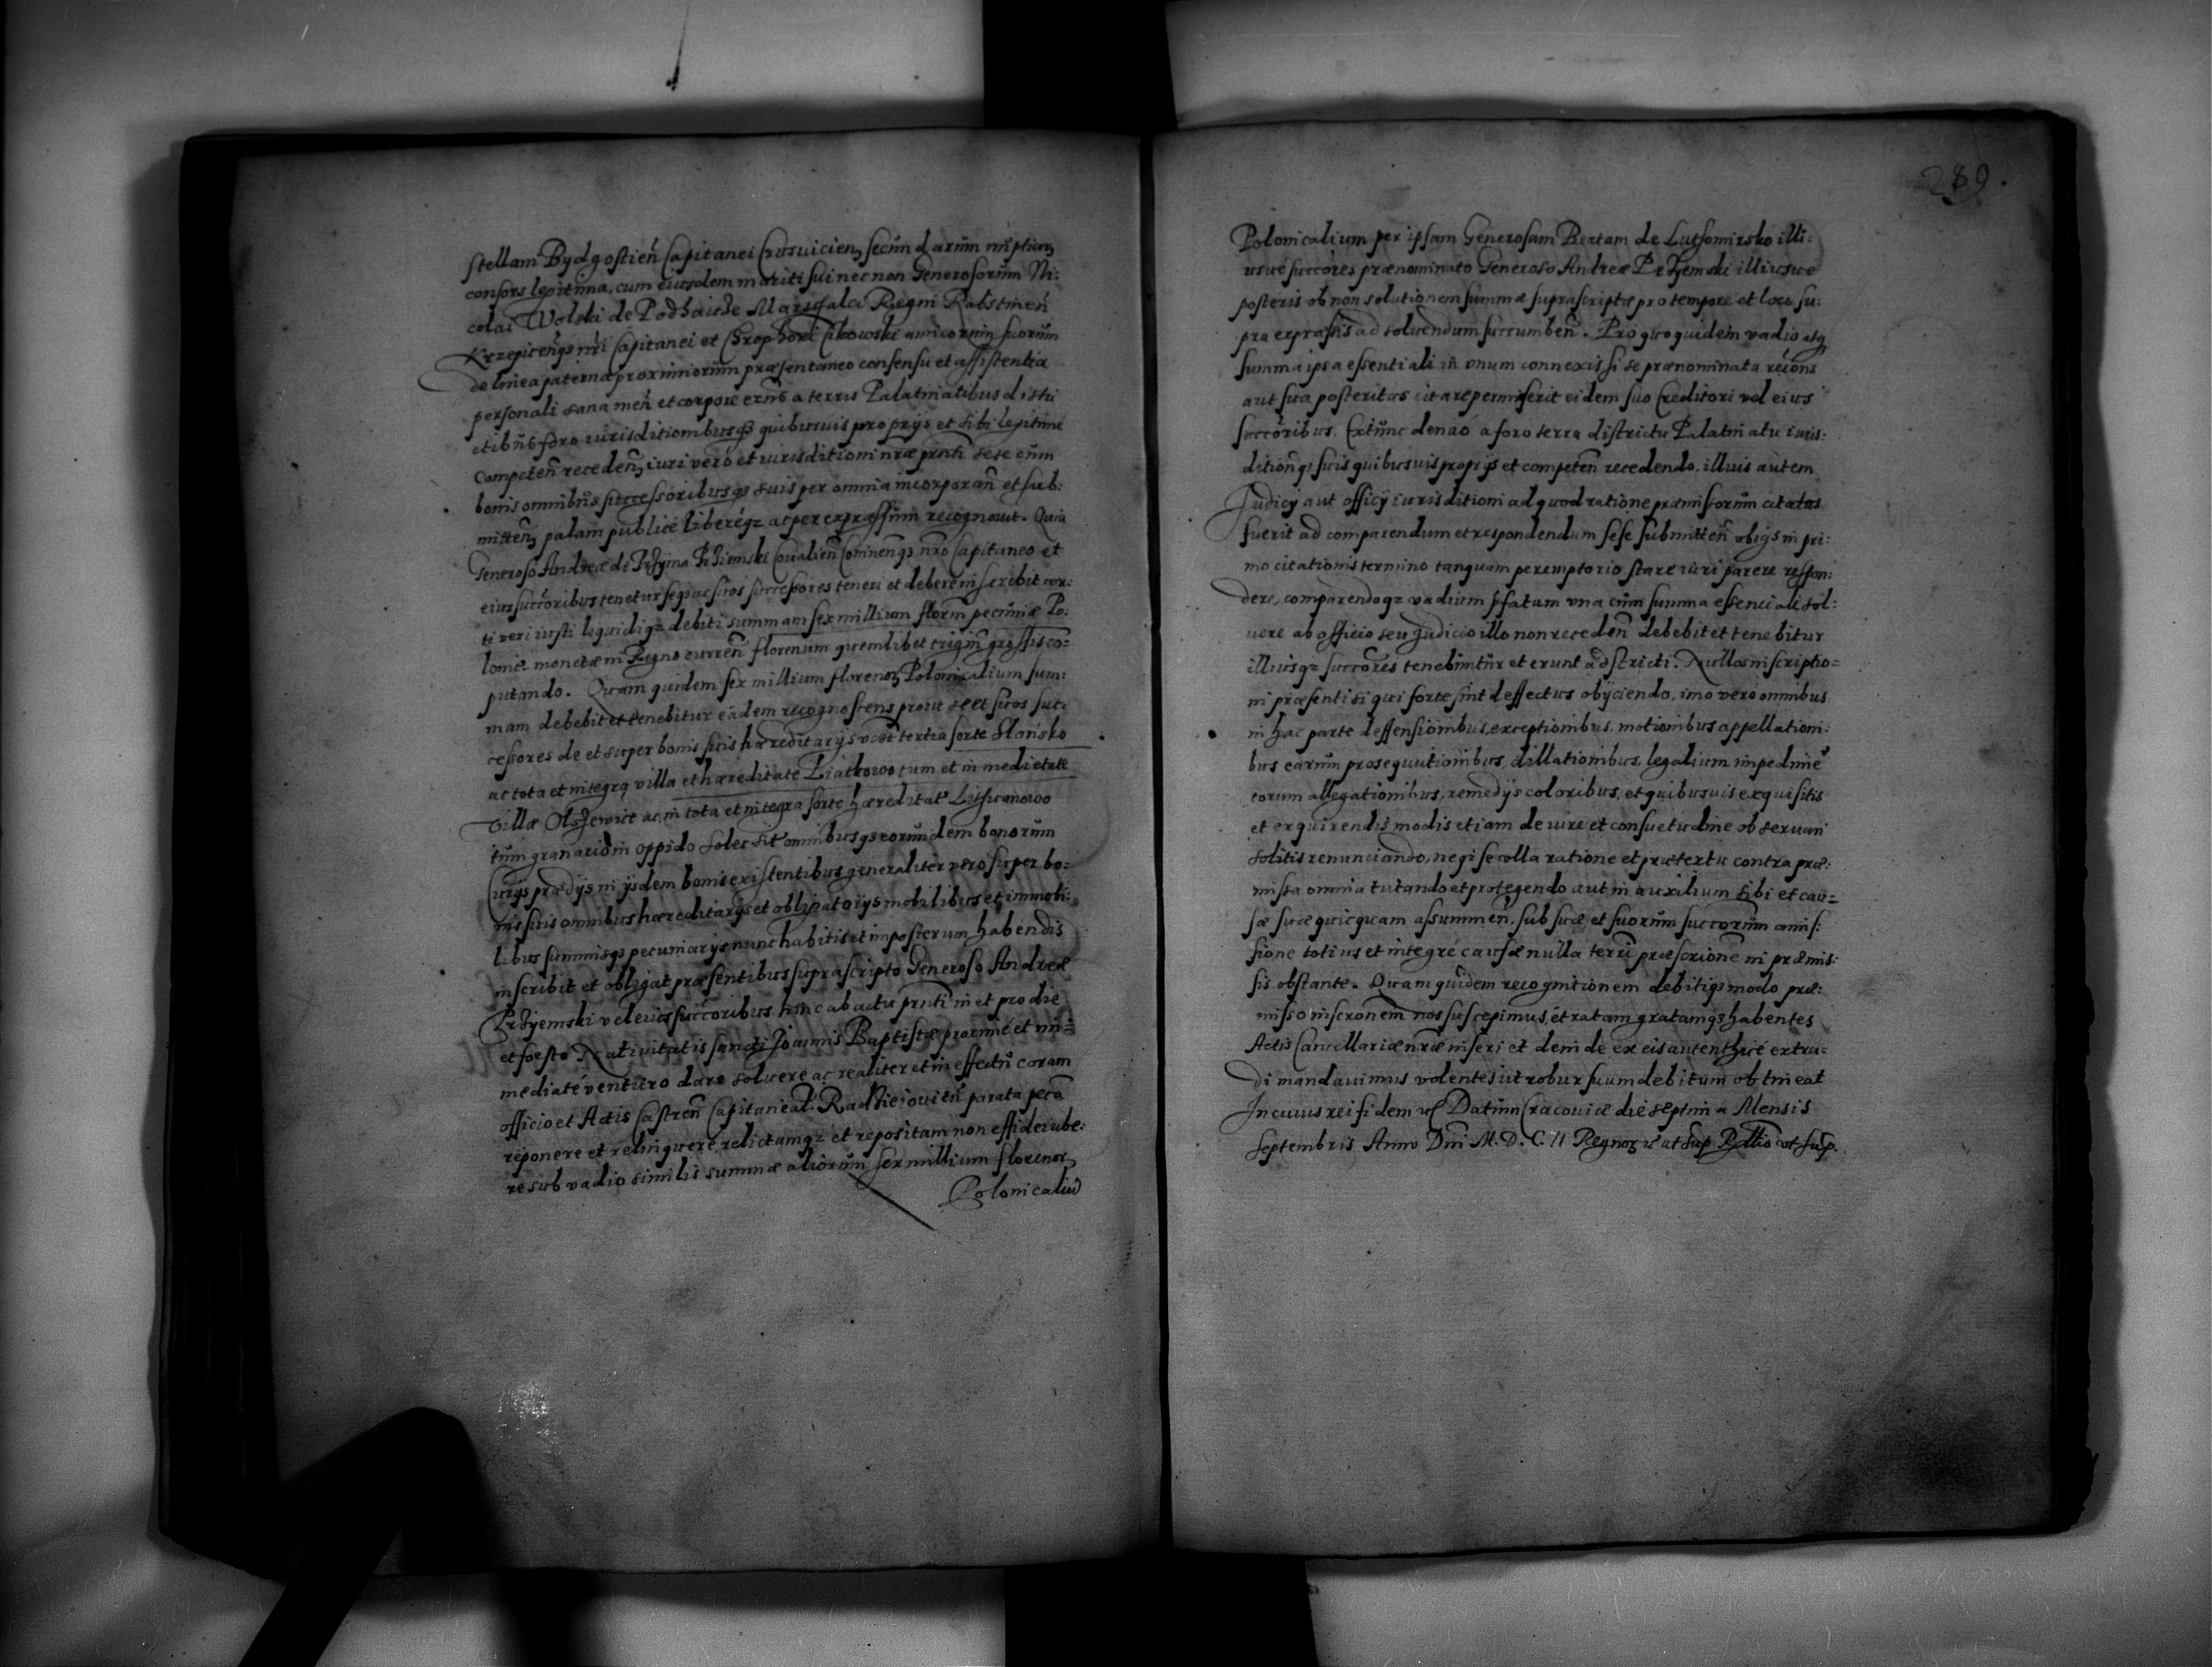 stellam Bydgostien̄ Capitanei Crusuicien̄ secundarum nuptiarum
consors legitima, cum eiusdem mariti sui nec non Generosorum Ni:
colai Wolski de Podhaicze Marschalci Regni Rabstinen̄
Krzepicen̄qȝ nr̄i Capitanei et Chrophori Cikowski amicorum suorum
de linea paterna proximiorum præsentaneo consensu et assistentia
personali sana men̄ et corpore exn̄s a terris Palatinatibus distri
ctibus foro iurisditionibusqȝ quibusuis proprijs et sibi legitime
Competen̄ receden̄ iuri vero et iurisditioni nr̄æ pn̄ti sese cum
bonis omnibus successoribusqȝ suis per omnia incorporan̄ et sub:
mitten̄ palam publicè liberéqȝ ac per expræssum recognouit. Quia
Generoso Andreæ de Przyjma Przÿiemski Coualien̄ Coninen̄qȝ nr̄o Capitaneo et
eius succōribus tenetur seqȝ ac suos successores teneri et debere inscribit cer:
ti veri iusti liquidiqȝ debiti summam sex millium floren̄ pecuniæ Po:
lonic. monetæ in Regno curren̄ florenum quemlibet trigin̄ grossis co=
putando. Quam quidem sex millium florenoꝝ Polonicalium sum:
mam debebit et tenebitur eadem recognoscens prout se et suos suc:
cessores de et super bonis suis hæreditarijs vidēt tertia sorte Slońsko
ac tota et integra villa et hæreditate Piatkowo tum et in medietate
villæ Olszewice ac in tota et integra sorte hæreditat Lithwanowo
tum granario in oppido Solec sit omnibusqȝ eorundem bonorum
Curijs prædijs in ijsdem bonis existentibus generaliter vero super bo=
nis suis omnibus hæreditarijs et obligatorijs mobilibus et immobi:
libus summisqȝ pecuniarijs nunc habitis et imposterum habendis
inscribit et obligat præsentibus suprascripto Generoso Andreæ
Przÿiemski vel eius succōribus. hinc ab actu pn̄ti in et pro die
et foesto Natiuitatis sancti Joannis Baptistæ proximé et im=
mediaté venturo dare soluere ac realiter et in effectu coram
officio et Actis Castren̄ Capitaneal. Radzieiouien̄ parata pec̄a
reponere et relinquere, relictamqȝ et repositam non effideiube:
re sub vadio similis summæ aliorum sex millium florenoꝝ
Polonicaliū
289.
Polonicalium per ipsam Generosam Beatam de Luthomirsko illi:
usué succōres prænominato Generoso Andreæ Przÿemski illiusue
posteris ob non solutionem summæ suprascriptæ pro tempore et loco su:
pra expræssis ad soluendum succumben̄. Pro quo quidem vadio atqȝ
summa ipsa essentiali in vnum connexis, si se prænominata recōns
aut sua posteritas citare permiserit eidem suo Creditori vel eius
succōribus. Extunc denuo a foro terra districtu Palatinatu iuris:
ditionqȝ suis quibusuis proprijs et competen̄ recedendo. illius autem
Judicij aut officij iurisditioni ad quod ratione præmissorum citatus
fuerit ad comparendum et respondendum sese submitten̄ vbi ijs in pri:
mo citationis termino tanquam peremptorio stare iuri parere respon:
dere, comparendoqȝ vadium pfatum vna cum summa essenciali sol:
uere ab officio seu Judicio illo non receden̄ debebit et tenebitur
illiusqȝ succōres tenebuntur et erunt adstricti. Nullos inscriptio=
ni præsenti si qui forte sint deffectus obijciendo, imo vero omnibus
in hac parte deffensionibus, exceptionibus. motionibus appellationi:
bus earum prosequutionibus, dillationibus, legalium impedime
torum allegationibus, remedijs coloribus, et quibusuis exquisitis
et exquirendis modis etiam de iure et consuetudine obseruari
solitis renunciando, neqȝ se volla ratione et prætextu contra præ:
missa omnia tutando et protegendo aut in auxilium sibi et cau=
sæ suæ quicquam assummen̄. sub suæ et suorum succorum amis:
sione totius et integré causæ nulla terrī præscrione in præmis:
sis obstante. Quam quidem recognitionem debitiqȝ modo præ:
misso inscronem nos suscepimus, et ratam gratamqȝ habentes
Actis Cancellariæ nr̄æ inseri et deinde ex eis autenthicé extra=
di mandauimus volentes ut robur suum debitum obtineat
In cuius rei fidem &c Datum Cracouiæ die septima Mensis
Septembris Anno Dn̄i M.D.C.II Regnoꝝ v ut sup Rellio vt sup.